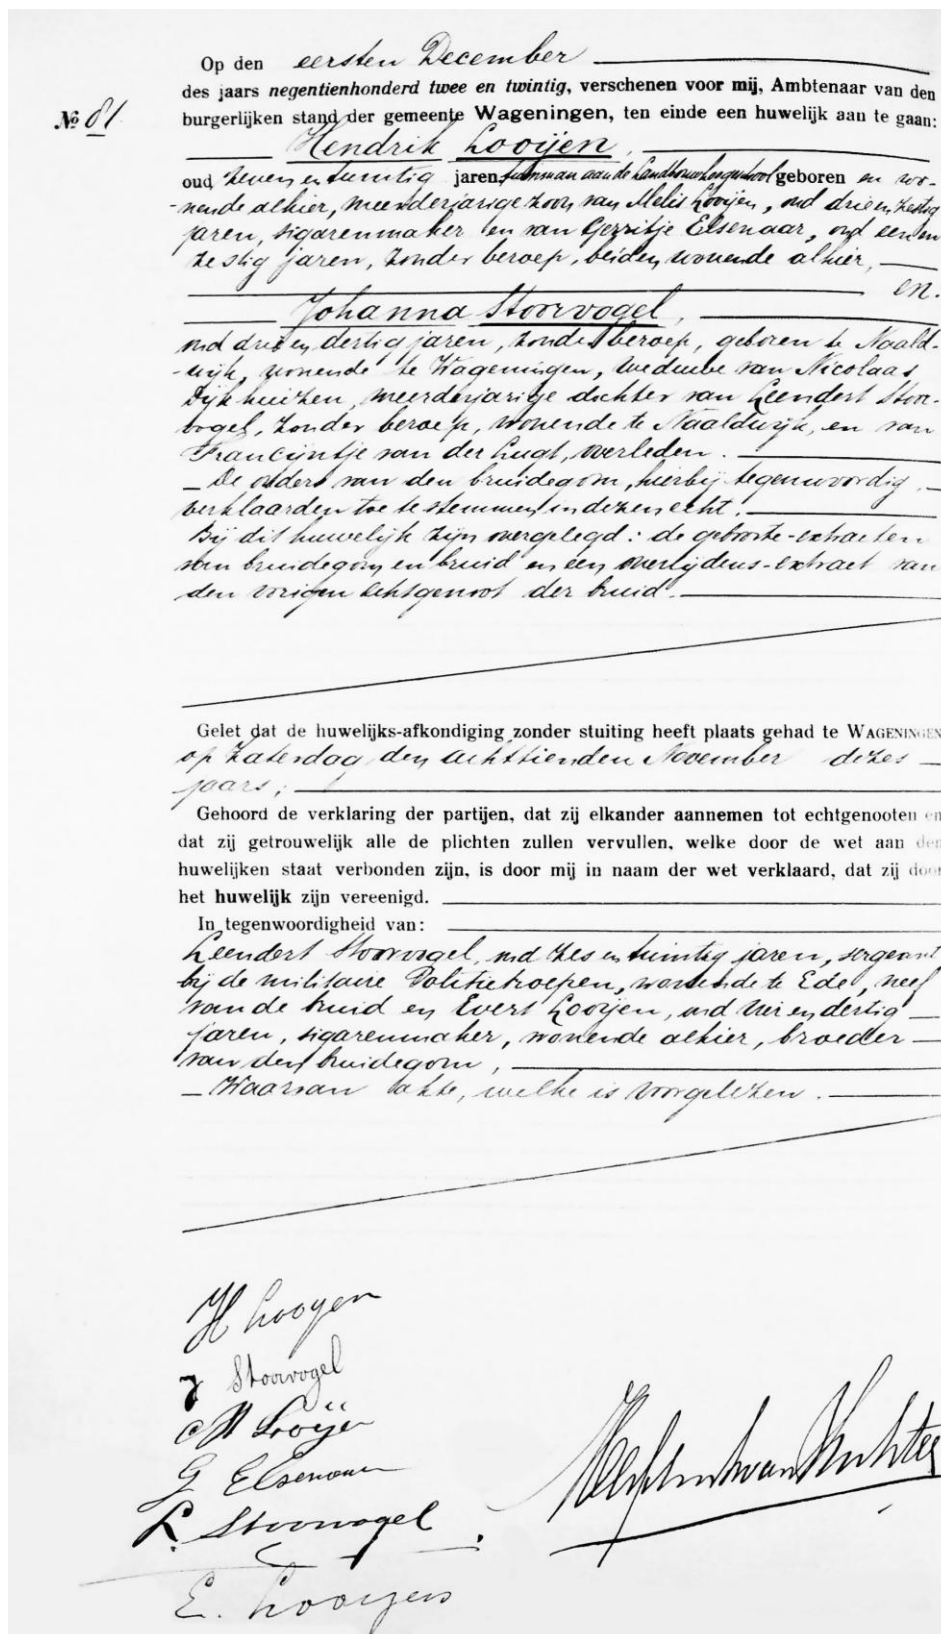 Op den eersten December
des jaars negentienhonderd twee en twintig, verschenen voor mij, Ambtenaar van den
№ 81 burgerlijken stand der gemeente Wageningen, ten einde een huwelijk aan te gaan:
Hendrik Looijen,
oud zeven en twintig jaren, tuinman aan de Landbouwhoogeschool geboren en wo-
-nende alhier, meerderjarige zoon van Melis Looijen, oud drie en zestig
jaren, sigarenmaker en van Gerritje Elsenaar, oud een en
zestig jaren, zonder beroep, beiden wonende alhier,
en.
Johanna Stoorvogel,
oud drie en dertig jaren, zonder beroep, geboren te Naald-
-wijk, wonende te Wageningen, weduwe van Nicolaas
Dijkhuizen, meerderjarige dochter van Leendert Stoor-
vogel, zonder beroep, wonende te Naaldwijk, en van
Francijntje van der Lugt, overleden.
De ouders van den bruidegom, hierbij tegenwoordig,
verklaarden toe te stemmen in dezen echt.
Bij dit huwelijk zijn overgelegd: de geboorte-extracten
van bruidegom en bruid en een overlijdens-extract van
den vorigen echtgenoot der bruid.
Gelet dat de huwelijks-afkondiging zonder stuiting heeft plaats gehad te WAGENINGEN
op Zaterdag den achttienden November dezes
jaars;
Gehoord de verklaring der partijen, dat zij elkander aannemen tot echtgenooten en
dat zij getrouwelijk alle de plichten zullen vervullen, welke door de wet aan den
huwelijken staat verbonden zijn, is door mij in naam der wet verklaard, dat zij door
het huwelijk zijn vereenigd.
In tegenwoordigheid van:
Leendert Stoorvogel, oud zes en twintig jaren, sergeant
bij de militaire Politietroepen, wonende te Ede, neef
van de bruid en Evert Looijen, oud vier en dertig
jaren, sigarenmaker, wonende alhier, broeder
van den bruidegom,
Waarvan akte, welke is voorgelezen.
H Looyen
J Stoorvogel
M Looijen
G Elsenaar
L. Stoorvogel
E. Looyen